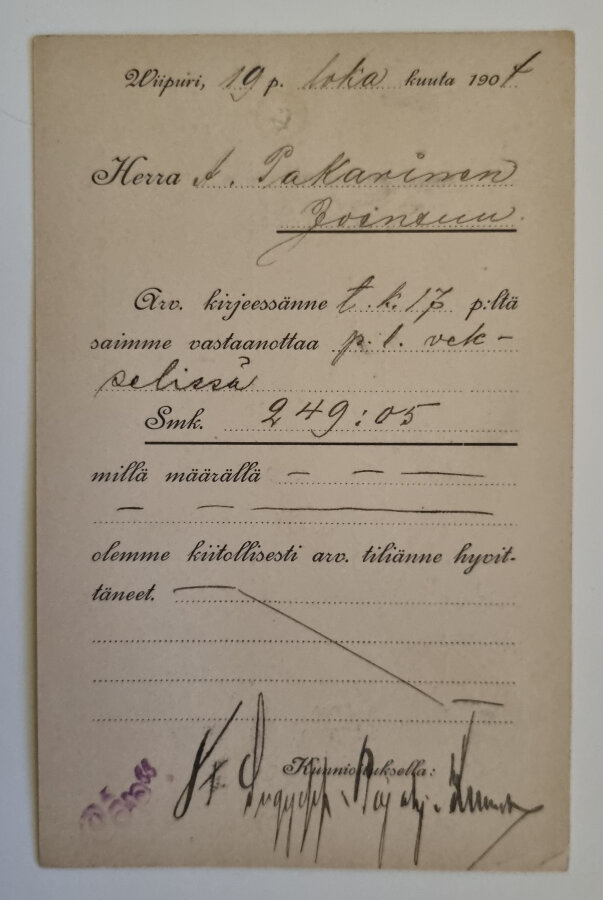 Wiipuri, 19 p. loka kuuta 1904
Herra A. Pakarinen
Joensuu.
Arv. kirjeessänne t.k. 17 p:ltä
saimme vastaanottaa p. l. vek-
selissä
Smk. 249:05
millä määrällä — — —
— — —
olemme kiitollisesti arv. tiliänne hyvit-
täneet. —
Kunnioituksella: